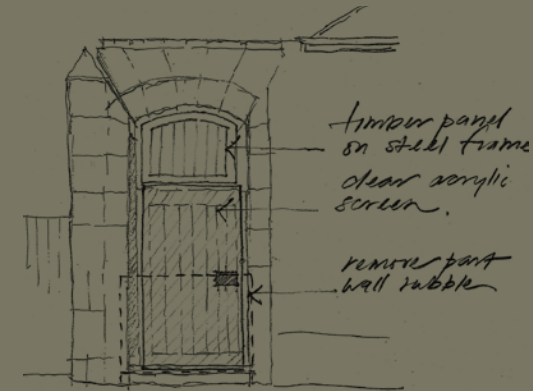 timber panel
on steel frame
clear acrylic
screen.
remove part
wall rubble